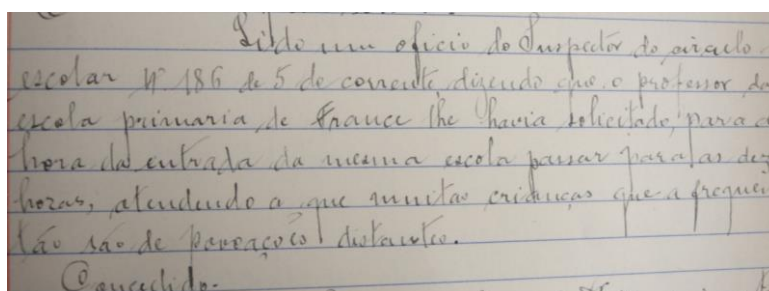 Lido um oficio do Inspector do circulo
escolar Nº 186 de 5 do corrente, dizendo que o professor da
escola primaria de France lhe havia solicitado, para a
hora da entrada da mesma escola passar para as dez
horas, atendendo a que muitas crianças que a frequen
tão são de povoações distantes.
Concedido.